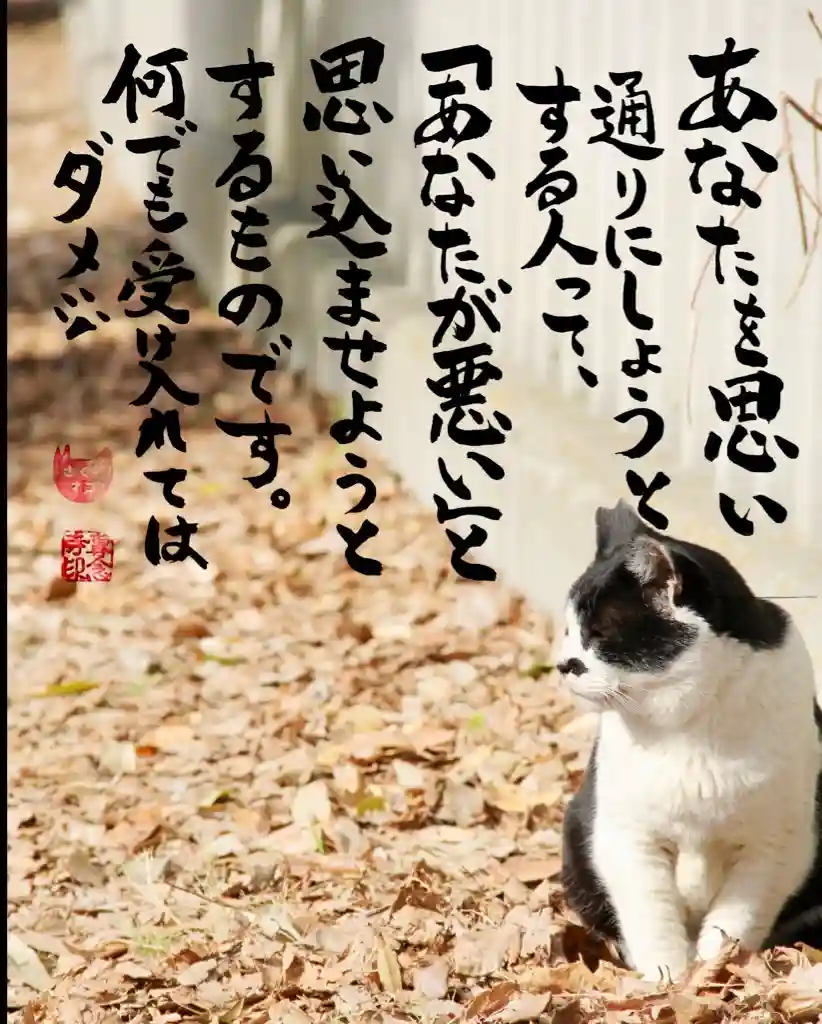 あなたを思い
通りにしようと
する人って、
「あなたが悪い」と
思い込ませようと
するものです。
何でも受け入れては
ダメ